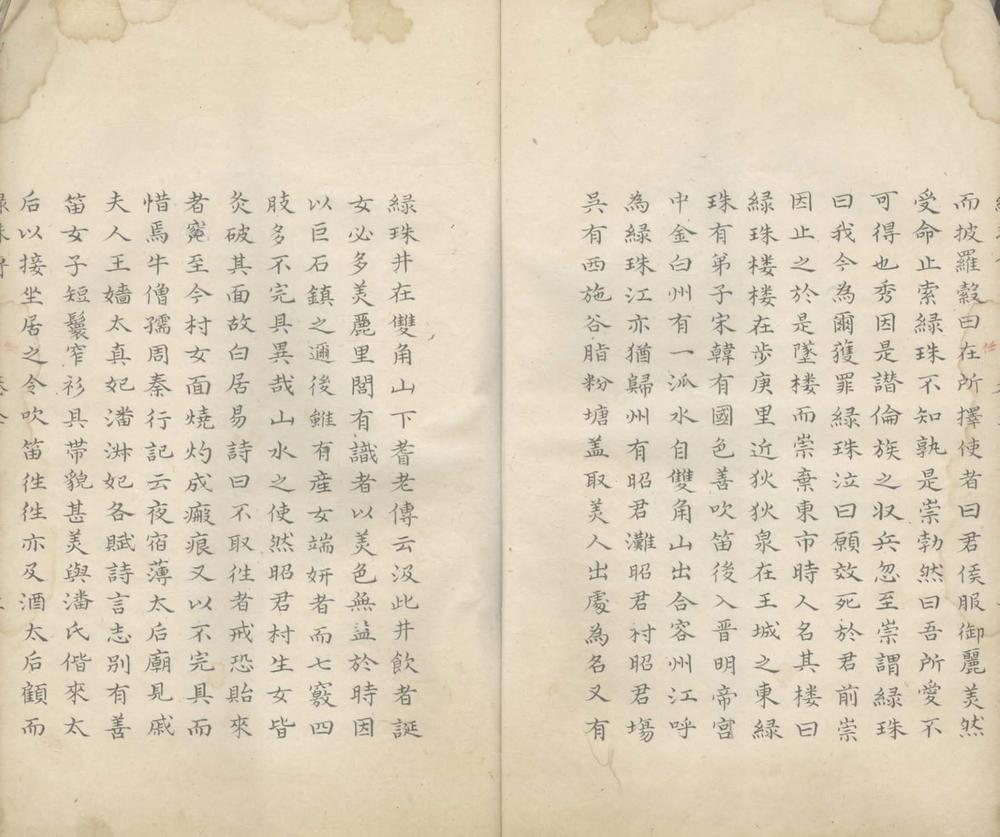 而披羅縠曰在所擇使者曰君侯服御麗美然
受命止索綠珠不知孰是崇勃然曰吾所愛不
可得也秀因是譖倫族之収兵忽至崇謂綠珠
曰我今為爾獲罪綠珠泣曰願效死於君前崇
因止之於是墜楼而崇棄東市時人名其楼曰
綠珠楼楼在步庚里近狄狄泉在王城之東綠
珠有弟子宋韓有國色善吹笛後入晋明帝宮
中金白州有一派水自雙角山出合容州江呼
為綠珠江亦猶歸州有昭君灘昭君村昭君塲
吳有西施谷脂粉塘盖取美人出處為名又有
綠珠井在雙角山下耆老傳云汲此井飲者誕
女必多美麗里閭有識者以美色無益於時因
以巨石鎮之邇後雖有產女端妍者而七竅四
肢多不完具異哉山水之使然昭君村生女皆
灸破其面故白居易詩曰不取徃者戒恐貽來
者寃至今村女面燒灼成瘢痕又以不完具而
惜焉牛僧孺周秦行記云夜宿薄太后廟見戚
夫人王嬙太真妃潘淑妃各賦詩言志別有善
笛女子短鬟窄衫具帶貌甚美與潘氏偕來太
后以接坐居之令吹笛徃徃亦及酒太后顧而